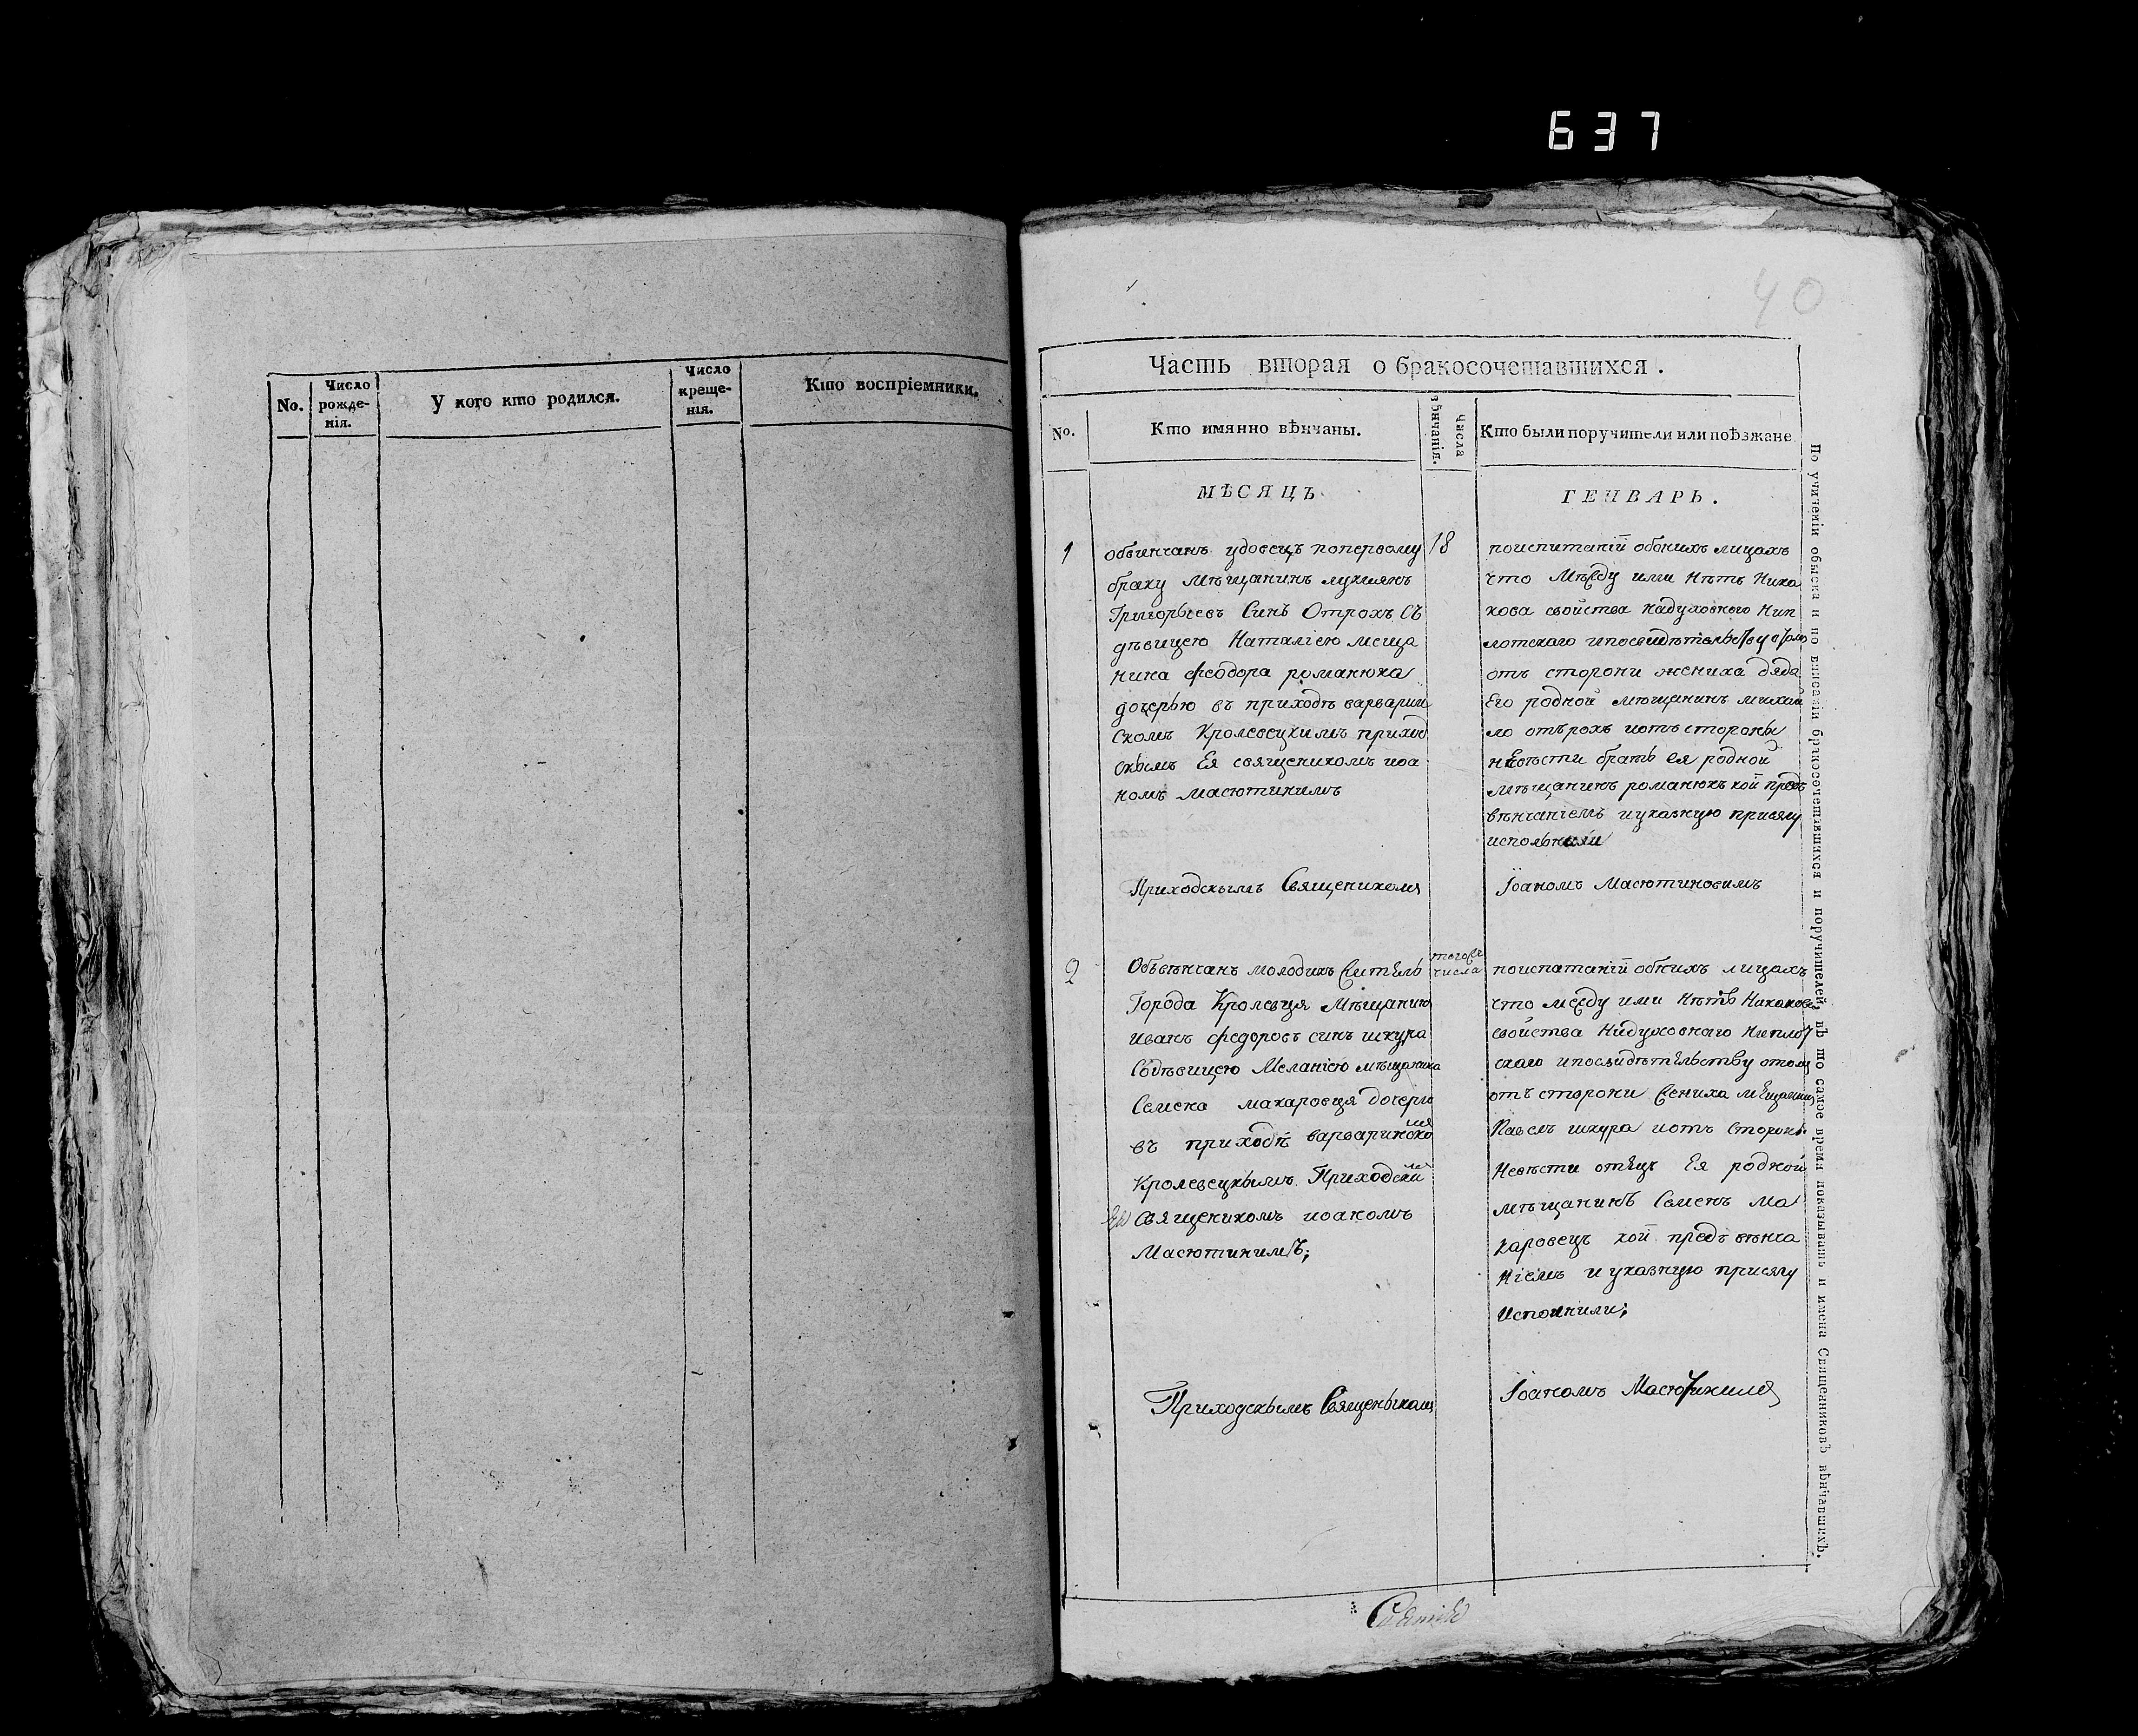 637
No.
Число рожде-нія.
У кого кто родился.
Число креще-нія.
Кто воспріемники.
40
Часть вторая о бракосочетавшихся.
No.
Кто имянно вѣнчаны.
Числа вѣнчанія.
Кто были поручители или поѣзжане
МѢСЯЦЪ
ГЕНВАРЬ.
1
обвинчанъ удовецъ попервому
браку мѣщанинъ лукиянъ
Григорьевъ Синъ Отрохъ Съ
дѣвицею Наталіею меща
нина феодора романюка
дочерью въ приходѣ варварин
скомъ Кролевецкимъ приход
скымъ Ея священикомъ иоа
номъ масютинимъ
18
поиспитаніи обоихъ лицахъ
что Между ими Нѣтъ Ника
кова свойства надуховного Нип
лотскаго ипосвидѣтельству
отъ сторони жениха дядя
Его родной мѣщанинъ михай
ло отърохъ иотъ стороны
невѣсти братъ ея родной
мѣщанинъ романюкъ кой предъ
вѣнчаніемъ иуказную присягу
Приходскымъ Священикомъ
Іоаномъ Масютиновимъ
2
Обвѣнчанъ молодикъ житель
Города Кролевця Мѣщанинъ
Иванъ федоровъ синъ шкура
Содѣвицею Меланіею мѣщанина
Семена макаровця дочерю
въ приходѣ варваринском
Кролевецкымъ Приходским
Ея Священикомъ иоаномъ
Масютинимъ;
тогожъ числа
поиспатаніи обоихъ лицахъ
что между ими Нѣтъ Никакова
свойства Нидуховнаго Ниплот
скаго ипосвидѣтельству отомъ
отъ сторони жениха мещанинъ
Павелъ шкура иотъ Стороны
Невѣсти отецъ Ея родной
мѣщанинъ Семенъ Ма
каровецъ кой предъ вѣнча
ніемъ и указную присягу
Исполнили;
Приходскымъ Священыкомъ
Іоаномъ Масютинимъ
По учиненіи обыска и по вписаніи бракосочетавшихся и поручителей, въ то самое время показывать и имена Священниковъ вѣнчавшихъ.